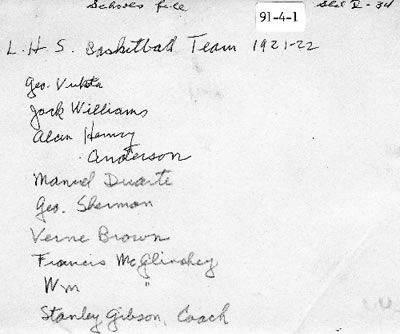 Schools file
91-4-1
L.H.S. Basketball Team 1921-22
Geo. Vukota
Jack Williams
Alan Henry
Anderson
Manuel Duarte
Geo. Sherman
Verne Brown
Francis McGlinchey
Wm "
Stanley Gibson, Coach